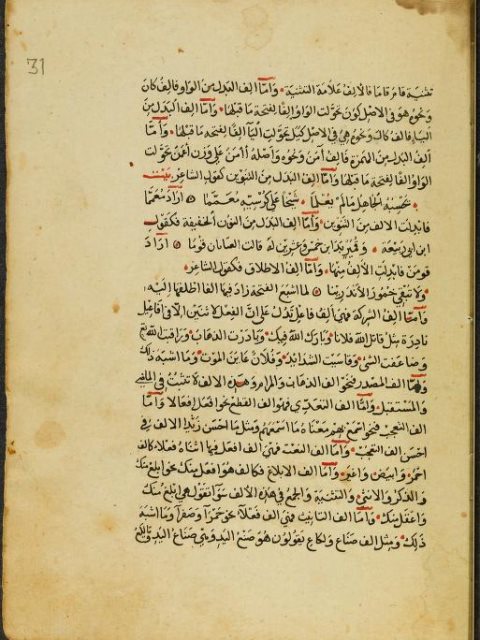 31
تثنية قام قاما فالالف علامة التثنية وَأمّا الف البَدَل مِنَ الوَاو فالِفُ كانَ
وَنحوه هوَ في الاصْل كَوَن تحوّلت الوَاوُ الِفًا لفتحة مَا قبلهَا وَأمّا الف البَدَل مِنَ
اليَاء فالف كال وَنحوه هِيَ في الاصْل كيَل تحوّلت اليَآ الِفًا لفتحة مَا قبلهَا وَأمّا
الف البَدَل مِنَ الهَمزة فالِف آمنَ وَنحوه وَاصْله أأمَنُ عَلى وَزن افعَلُ تحوّلت
الوَاوُ الِفًا لفتحة مَا قبلهَا وَأمّا الف البَدَل مِنَ التنوين كقول الشاعِر
يَحسَبهُ الجَاهِل مَا لم يَعْلمَا شيخًا عَلى كُرْسيّه مُعَمَّمَا ارَادَ مُعَمَّمًا
فابدلت الالف مِنَ التنوين وَأمّا الف البَدَل مِنَ النون الخفيفة فكقول
ابن ابي رَبيعَة وَقُمَيرٌ بَدَا ابنَ خمسٍ وَعشرينَ لهُ قالت الفتاتان قومَا ارَادَ
قومَن فابدلت الالِفُ منهَا وَأمّا الف الاطلاق فكقول الشاعِر
وَلا تُبقي خمُورَ الاَندَرينَا لما اشبع الفتحة زادَ فيهَا الفًا اطلقهَا اليه
وَأمّا الف الشركة فهيَ الف فاعَل تدُل عَلى انّ الفِعْل لاثنَين الّا في افاعِيل
نادِرة مثل قاتلَ اللهُ فلانا وَبَارَكَ اللهُ فيكَ وَبَادَرتُ الذهَابَ وَرَاقبتُ اللهَ
وَضاعَفتُ الشيْ وَقاسَيتُ الشدَائِدَ وَفُلان عَايَنَ الموتَ وَمَا اشبَه ذلك
وَأمّا الف المَصْدر فنحوُ الف الذهَاب وَالمرَام وَهذِهِ الالف لا تثبُتُ في المَاضِي
وَالمُستقبل وَأمّا الف التعَدّي فهوَ الف القَطع نحوَ افعَل افعَالا وَأمّا
الف التعجب فنحوُ اسمع بهم مَعْنَاهُ مَا اسمَعَهُم وَمثل مَا احسَن زَيْدًا الالف في
احسَن الف التعجُّب وَأمّا الف النعت فهيَ الف افعَل فيهَا انثاهُ فعلاء كالف
احمَر وَابيض وَاغبر وَأمّا الف الابلاغ فكالف هوَ افعَل مِنكَ نحوُ ابلغ مِنكَ
وَالذكرُ وَالانثى وَالتثنية وَالجمعُ في هذِهِ الالف سَوَآ تقول هيَ ابلغ مِنكَ
وَاعقل مِنكَ وَأمّا الف التانيث فهيَ الف فَعلاَ نحوَ حمرآ وَصَفرآ وَمَا اشبَه
ذلِكَ وَمِثل الف صَنَاع وَلكاع يقولونَ هوَ صَنَعُ اليَدِ وَهيَ صَنَاعُ اليَدِ